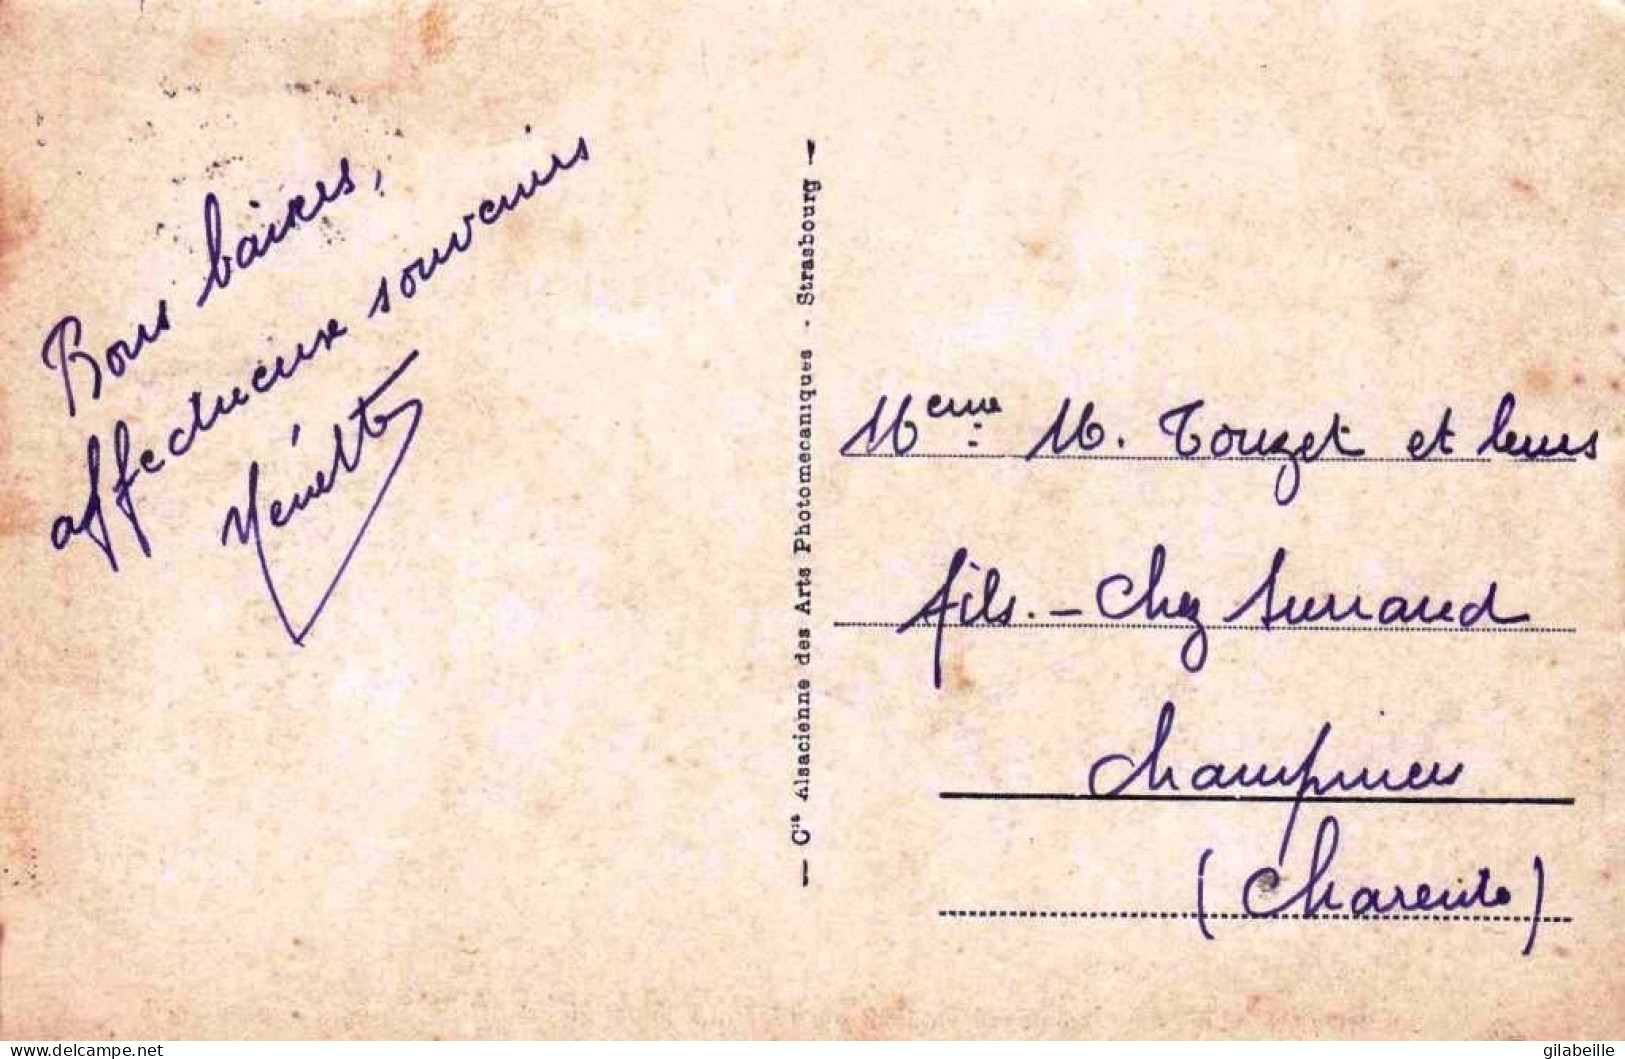 Bons baises,
affectueux souvenirs
— Cie Alsacienne des Arts Photomecaniques - Strasbourg —
Mme M. Touzet et leurs
fils. - Chez Surraud
Champniers
(Charente)
www.delcampe.net
gilabeille